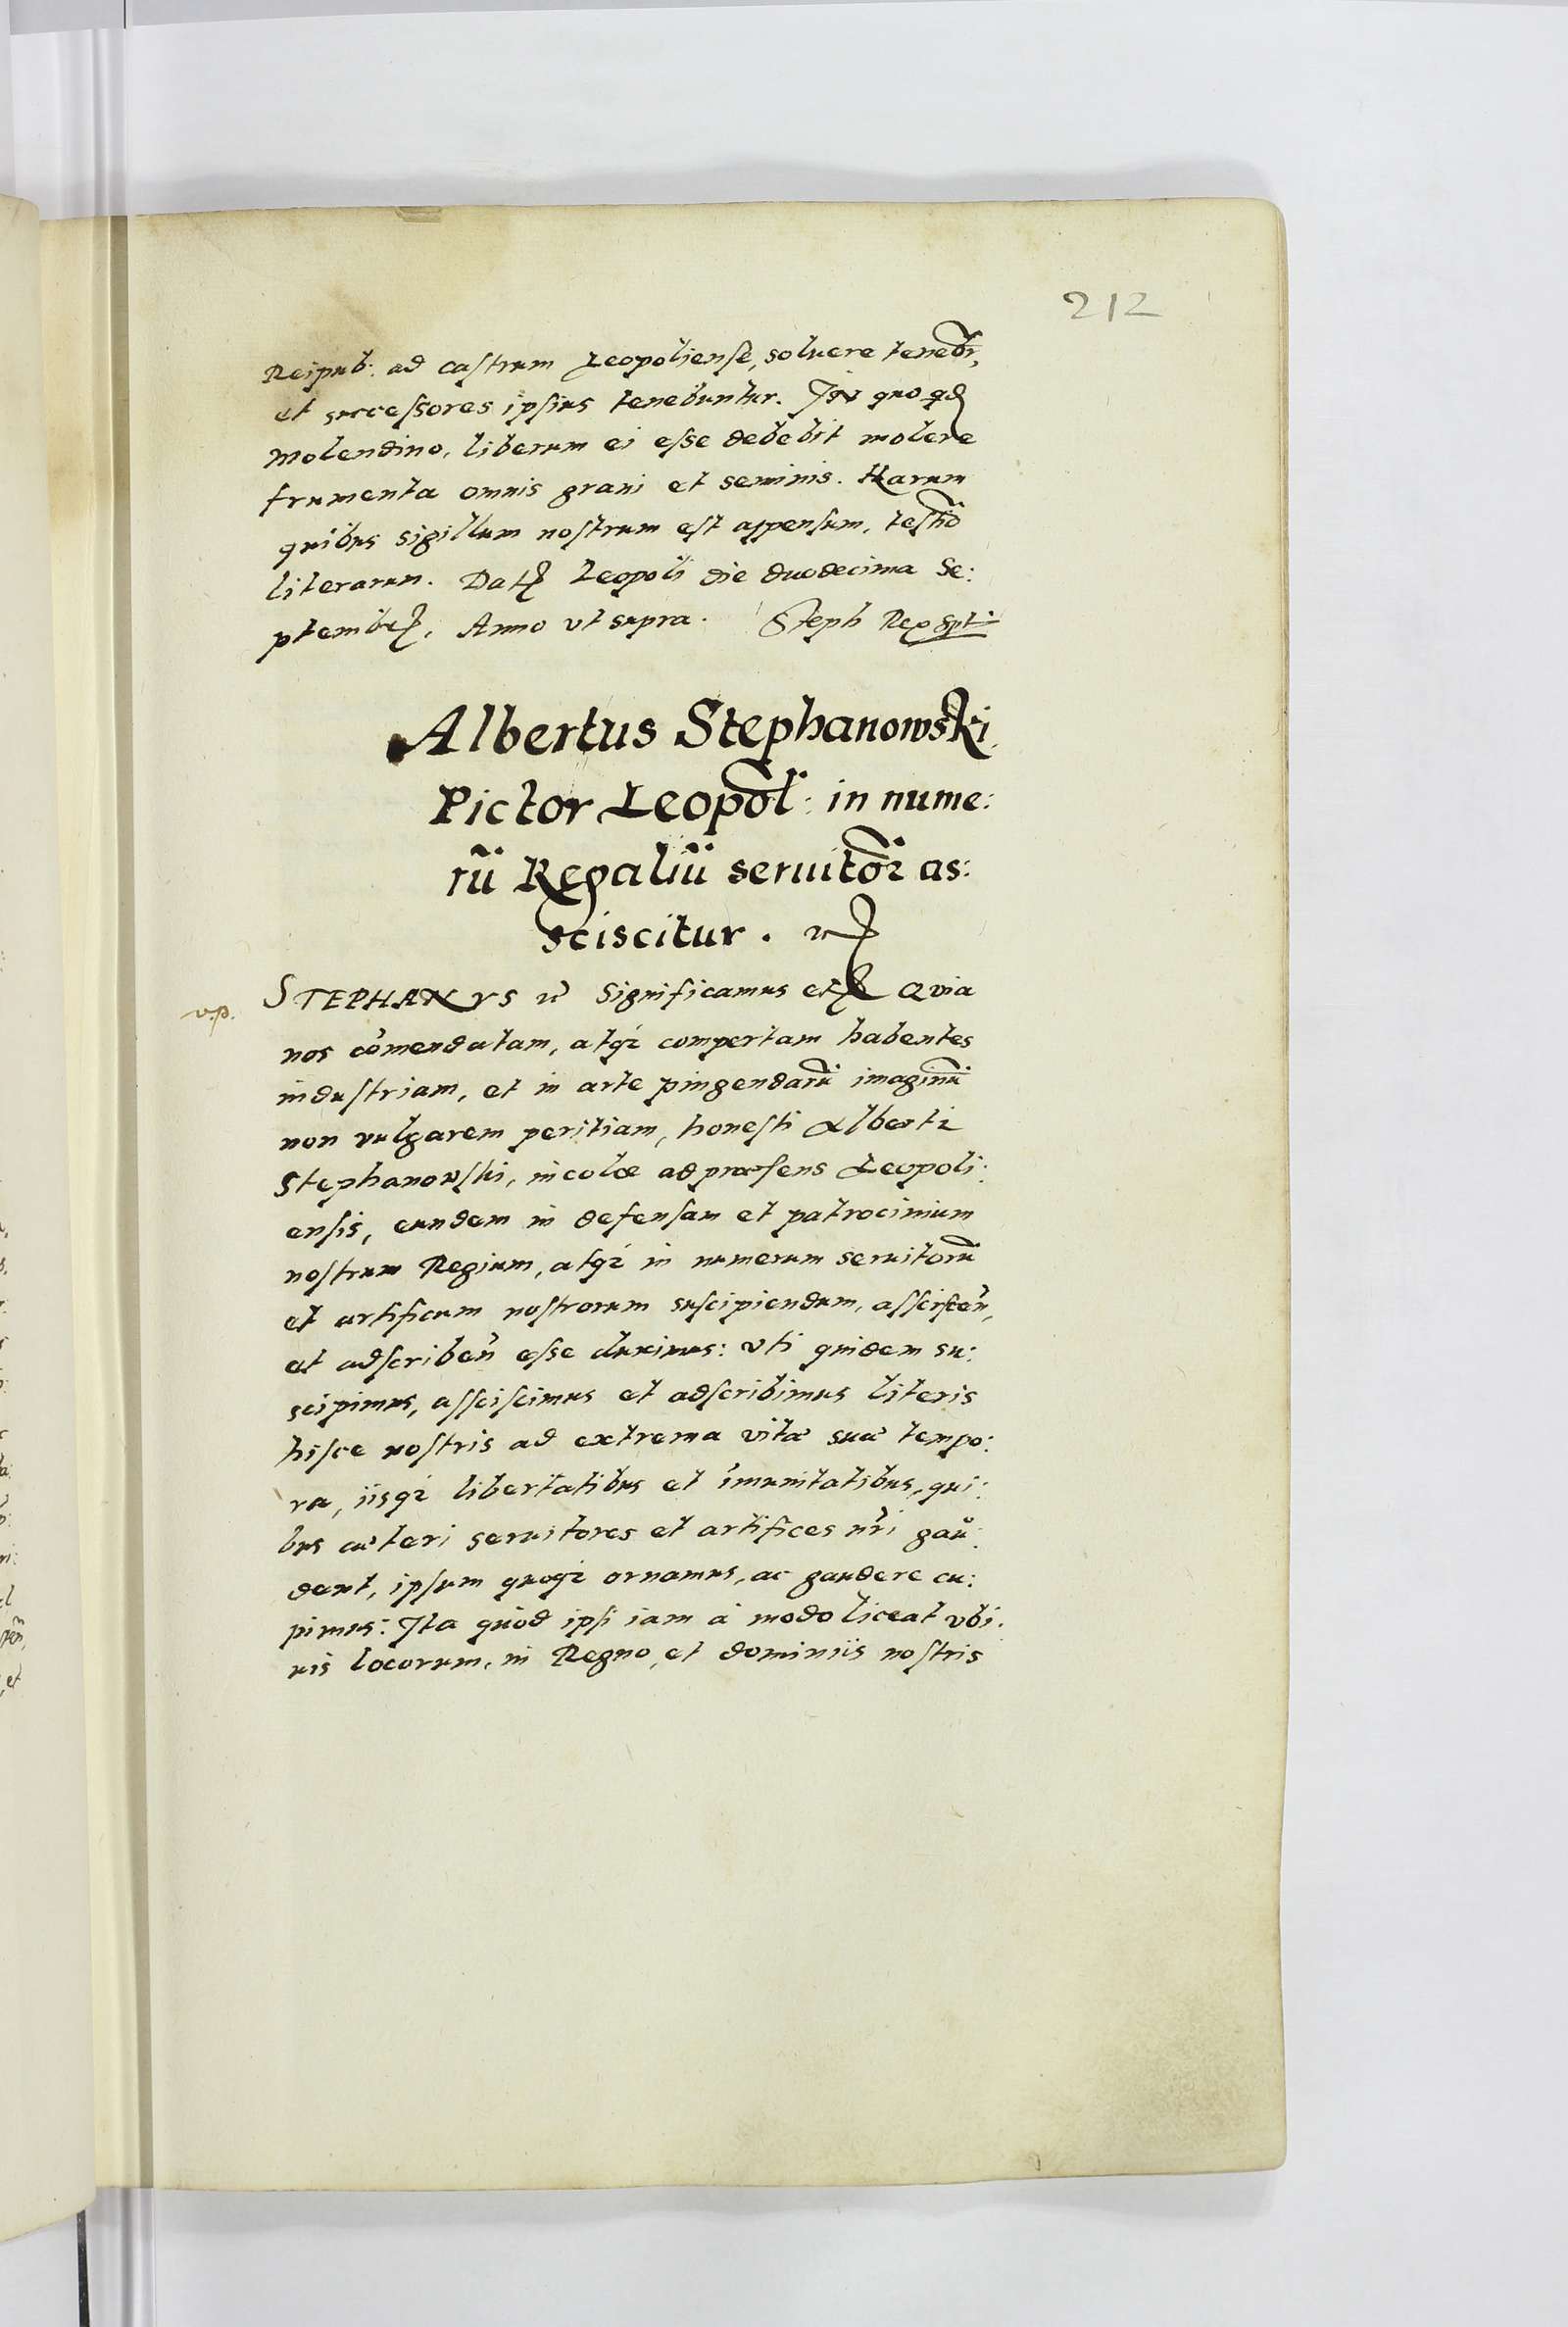 212
Reipub: ad castrum Leopoliense, soluere tenebr̃,
et successores ipsius tenebuntur. IN quo qd̃
molendino, liberum ei esse debebit molere
frumenta omnis grani et seminis. Harum
quibus sigillum nostrum est appensum, testiõ
literarum. Dat̃ Leopoli die duodecima Se:
ptembr̃, Anno vt supra. Steph Rex spt:
Albertus Stephanowski
Pictor Leopol̃: in nume:
rũ Regaliũ seruitor̃ as:
sciscitur.
v.p.
STEPHANVS Significamus etc̃ Quia
nos cõmendatam, atq3 compertam habentes
industriam, et in arte pingendarũ imaginũ
non vulgarem peritiam, honesti Alberti
Stephanowski, incolæ ad præsens Leopoli:
ensis, eundem in defensam et patrocinium
nostrum Regium, atq3 in numerum seruitorũ
et artificum nostrorum suscipiendum, assciscen̄,
et adscriben̄ esse duximus: vti quidem su:
scipimus, assciscimus et adscribimus literis
hisce nostris ad extrema vitæ suæ tempo:
ra, iisq3 libertatibus et im̃unitatibus, qui:
bus cæteri seruitores et artifices nr̃i gau:
dent, ipsum quoq3 ornamus, ac gaudere cu:
pimus: Ita quòd ipsi iam à modo liceat vbi.
uis locorum, in Regno, et dominiis nostris